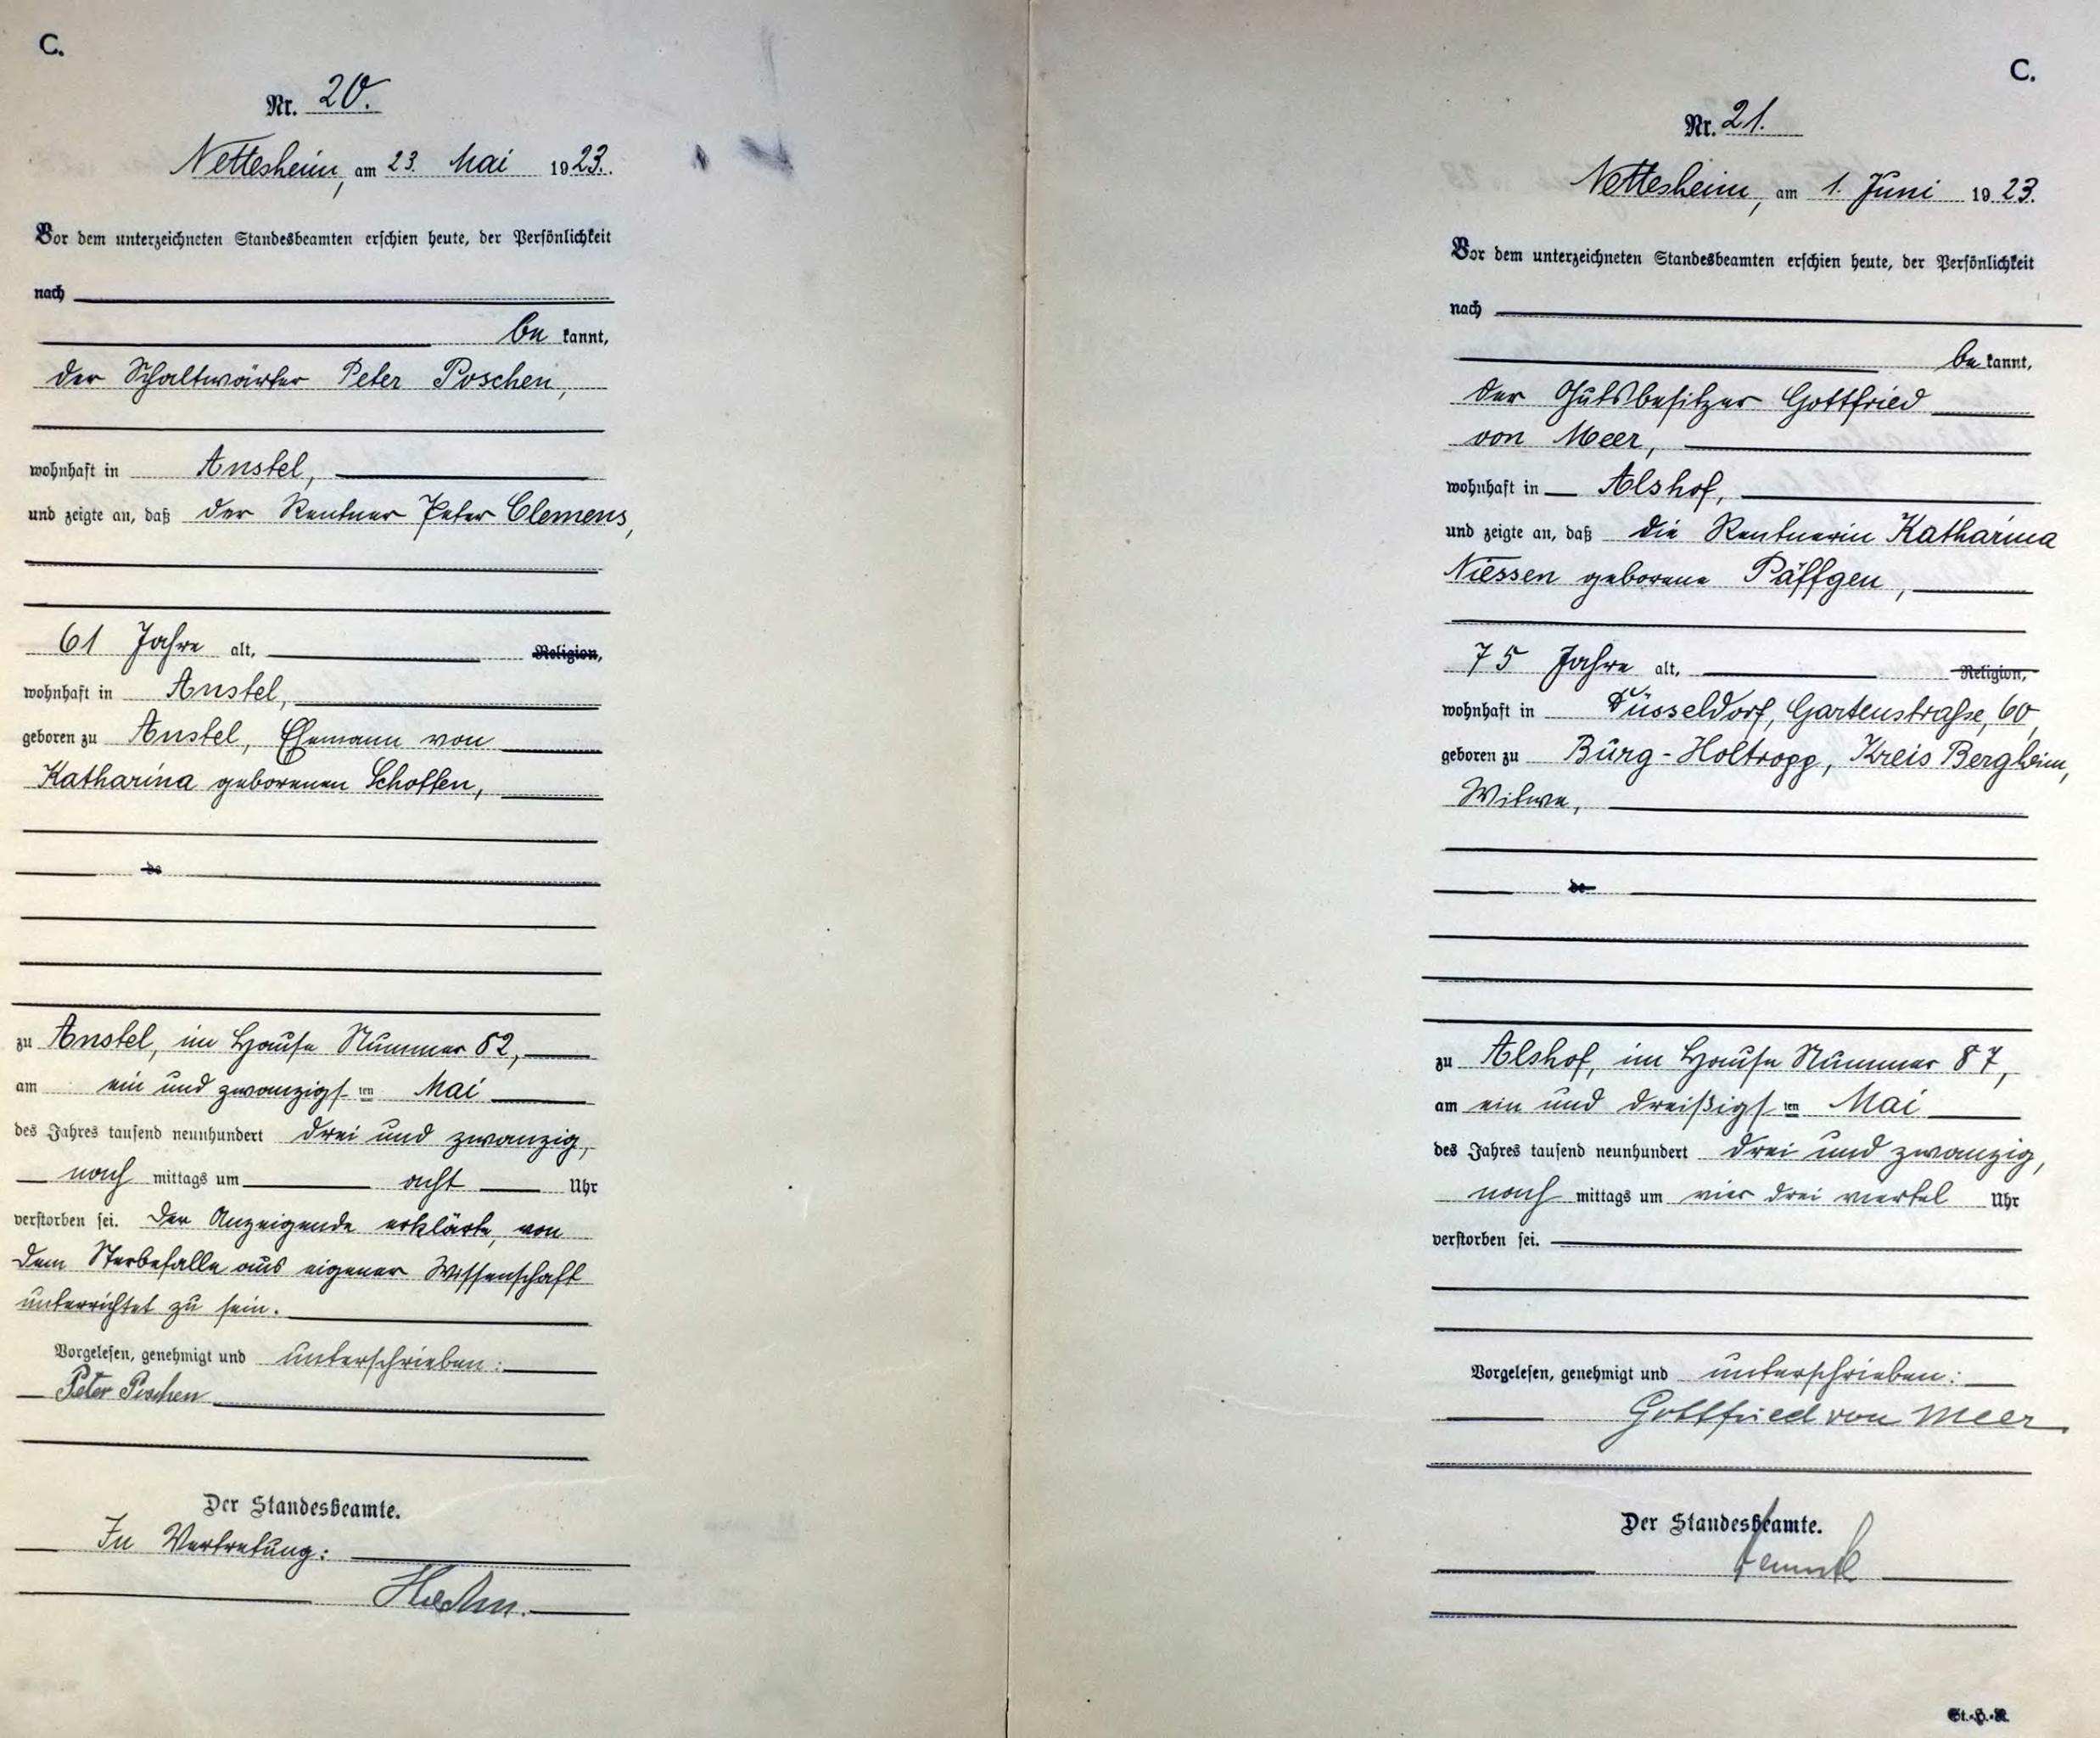 C.
Nr. 20.
Nettesheim, am 23. Mai 1923.
Vor dem unterzeichneten Standesbeamten erschien heute, der Persönlichkeit
nach
be kannt,
der Schaltwärter Peter Poschen,
wohnhaft in Anstel,
und zeigte an, daß der Rentner Peter Clemens,
61 Jahre alt, Religion,
wohnhaft in Anstel,
geboren zu Anstel, Ehemann von
Katharina geborenen Schotten,
de
zu Anstel, im Hause Nummer 52,
am ein und zwanzigs ten Mai
des Jahres tausend neunhundert drei und zwanzig,
nach mittags um acht Uhr
verstorben sei. Der Anzeigende erklärte, von
dem Sterbefalle aus eigener Wissenschaft
unterrichtet zu sein.
Vorgelesen, genehmigt und unterschrieben:
Peter Poschen
Der Standesbeamte.
In Vertretung:
C.
Nr. 21.
Nettesheim, am 1. Juni 1923.
Vor dem unterzeichneten Standesbeamten erschien heute, der Persönlichkeit
nach
be kannt,
der Gutsbesitzer Gottfried
von Meer,
wohnhaft in Alshof,
und zeigte an, daß die Rentnerin Katharina
Niessen geborene Päffgen,
75 Jahre alt, Religion,
wohnhaft in Düsseldorf, Gartenstraße, 60,
geboren zu Bürg-Holtropp, Kreis Bergheim,
Witwe,
de
zu Alshof, im Hause Nummer 87,
am ein und dreißigs ten Mai
des Jahres tausend neunhundert drei und zwanzig,
nach mittags um vier drei viertel Uhr
verstorben sei.
Vorgelesen, genehmigt und unterschrieben:
Gottfried von Meer
Der Standesbeamte.
St.-H.-R.